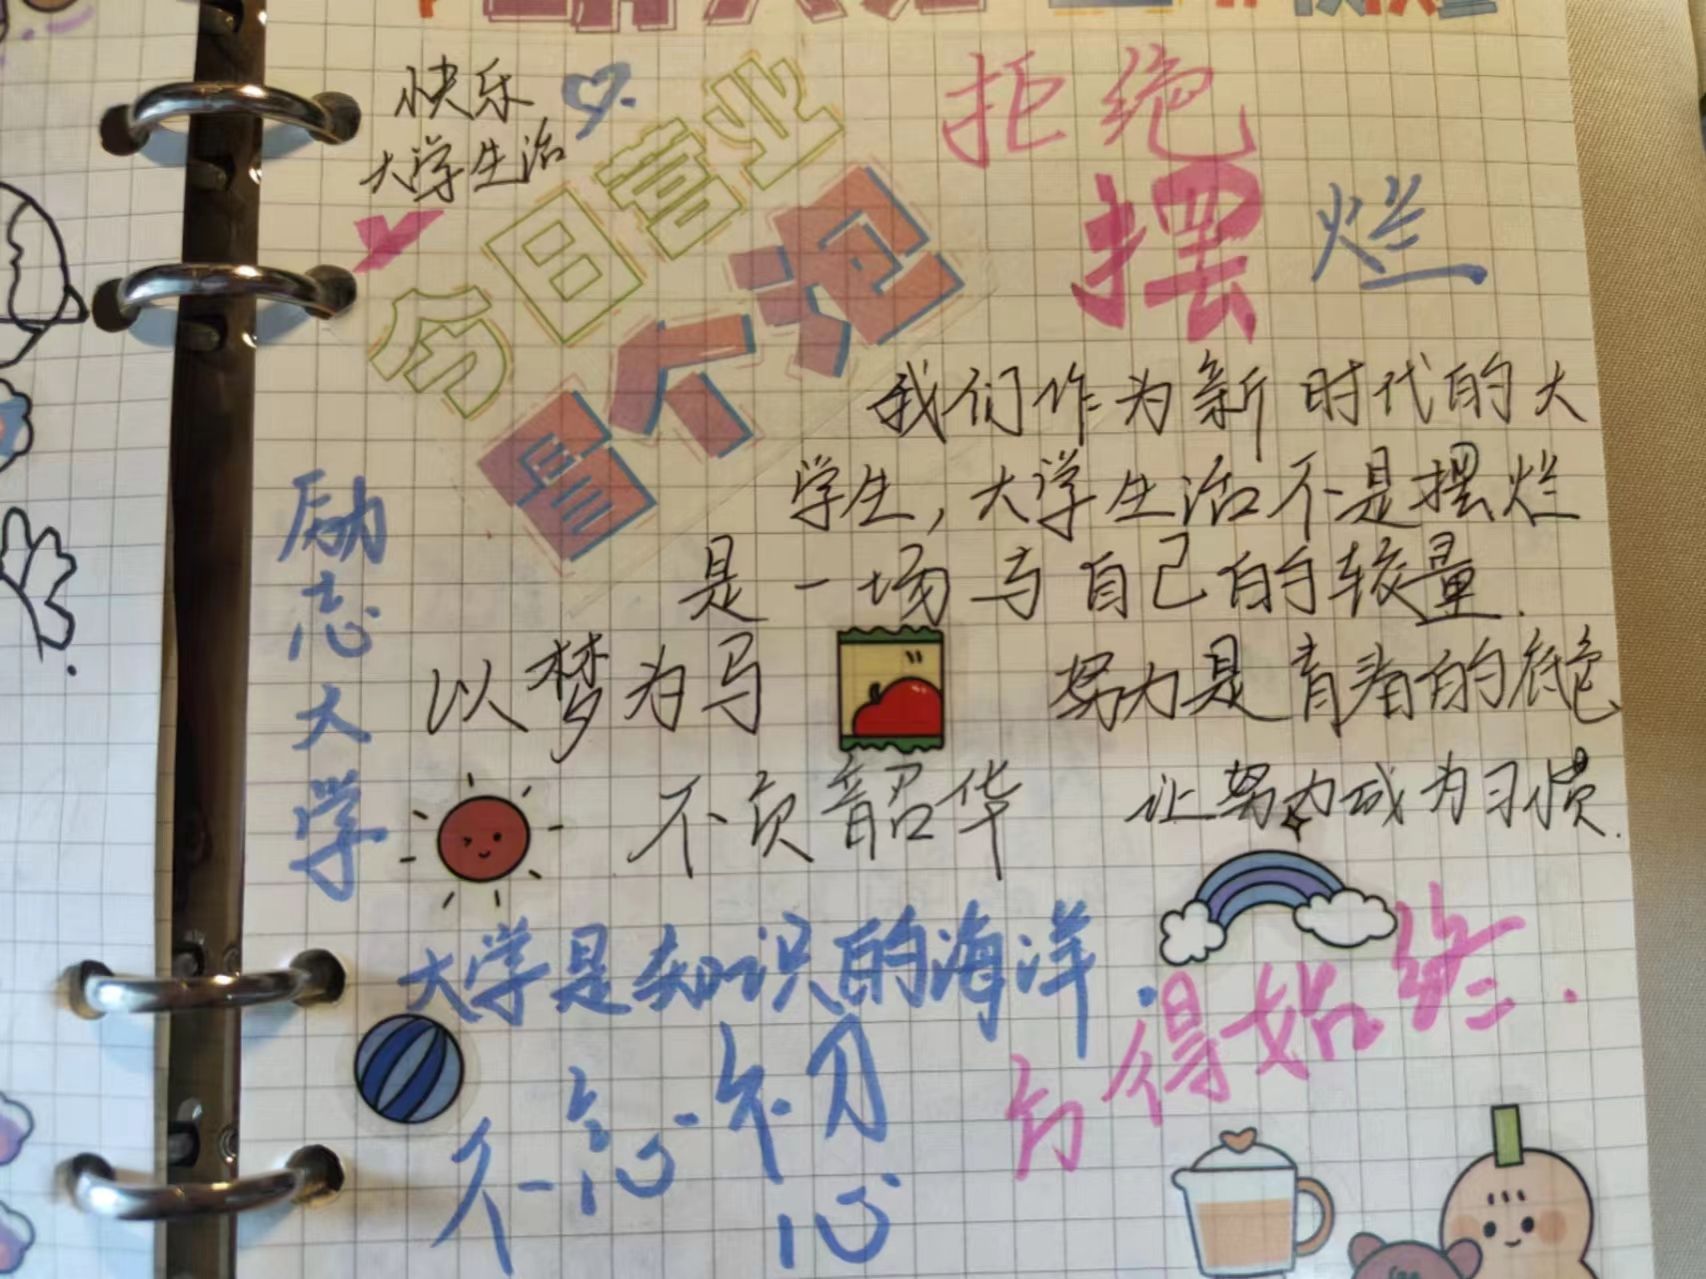 快乐
大学生活
今日营业
冒个泡
拒绝
摆烂
我们作为新时代的大
学生,大学生活不是摆烂
是一场与自己的较量.
励志大学
以梦为马
努力是青春的底色
不负韶华
让努力成为习惯.
大学是知识的海洋.
不忘初心
方得始终.